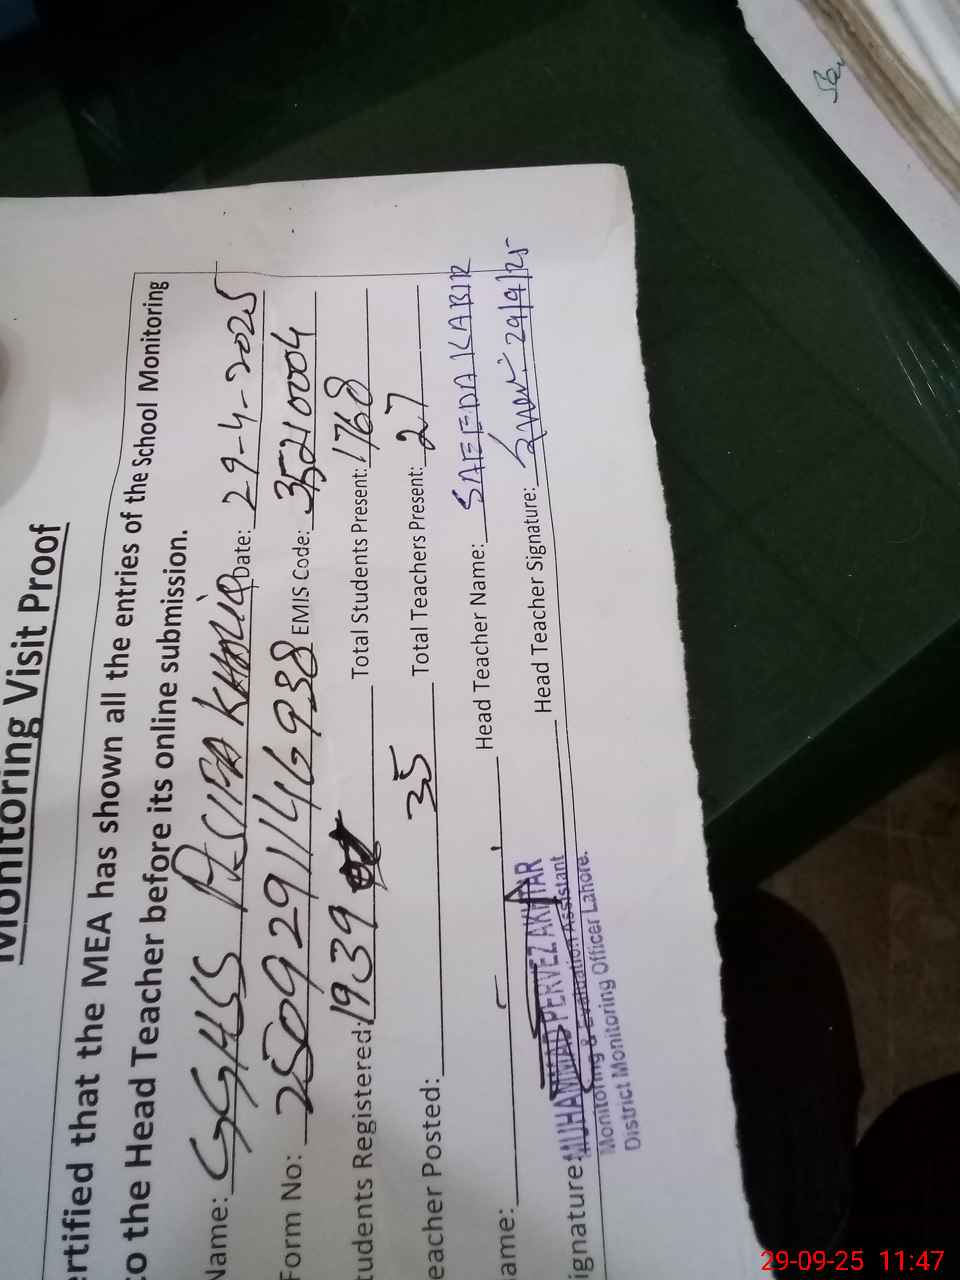 Monitoring Visit Proof
ertified that the MEA has shown all the entries of the School Monitoring
to the Head Teacher before its online submission.
Name: GGHSS ASIFA KHALIQ Date: 29-4-2025
Form No: 250929114G938 EMIS Code: 35210004
tudents Registered: 1939 Total Students Present: 1768
eacher Posted: 35 Total Teachers Present: 27
ame: Head Teacher Name: SAEEDA KABIR
ignature: MUHAMMAD PERVEZ AKHTAR Head Teacher Signature: 29/9/25
Monitoring & Evaluation Assistant
District Monitoring Officer Lahore.
29-09-25 11:47